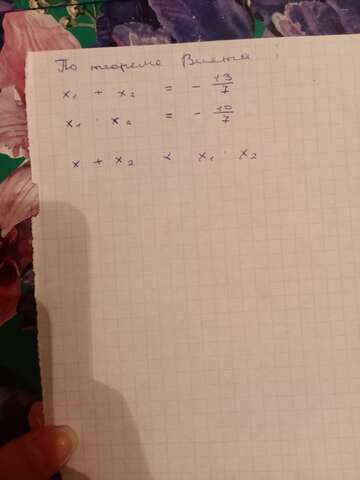 По теореме Виета :
x₁ + x₂ = - 13/7
x₁ · x₂ = - 10/7
x + x₂ < x₁ · x₂